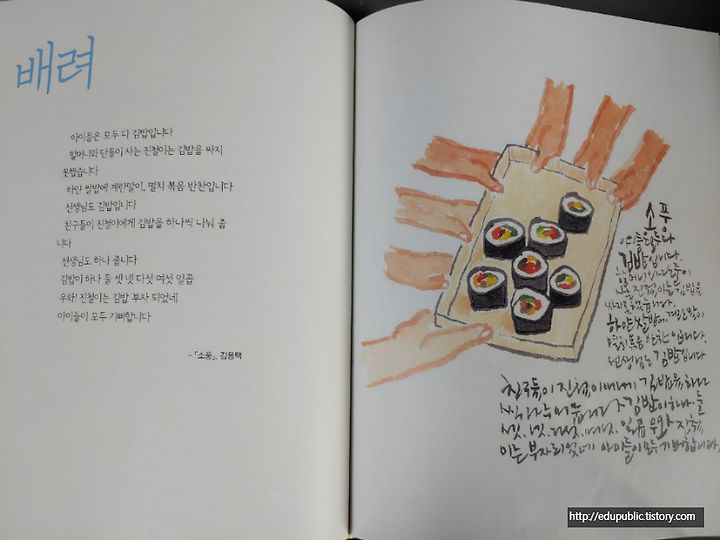 배려
아이들은 모두 다 김밥입니다
할머니와 단둘이 사는 진철이는 김밥을 싸지
못했습니다
하얀 쌀밥에 계란말이, 멸치 볶음 반찬입니다
선생님도 김밥입니다
친구들이 진철이에게 김밥을 하나씩 나눠 줍
니다
선생님도 하나 줍니다
김밥이 하나 둘 셋 넷 다섯 여섯 일곱
우와! 진철이는 김밥 부자 되었네
아이들이 모두 기뻐합니다
- 「소풍」, 김용택
소풍
김밥입니다.
하얀 쌀밥에, 계란말이
멸치볶음 반찬입니다.
선생님도 김밥입니다
친구들이 진철이에게 김밥을, 하나
씩 나누어 줍니다 김밥이 하나. 둘
셋. 넷. 다섯. 여섯. 일곱 우와 진철
이는 부자되었네 아이들이 모두 기뻐합니다.
http://edupublic.tistory.com